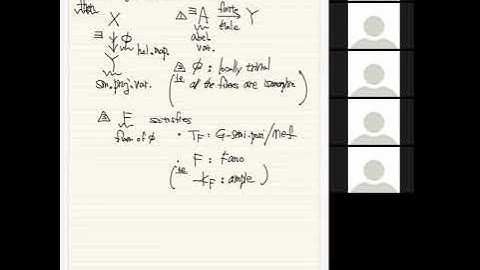 then
X
∃ ↓ φ hol. map.
Y
sm. proj. var.
① ∃A finite → étale Y
abel var.
② φ : locally trivial
( ie all the fibers are isomorphic )
③ F satisfies
fiber of φ
• T_F : G-semi-posi/nef
• F : Fano
( ie -K_F : ample )